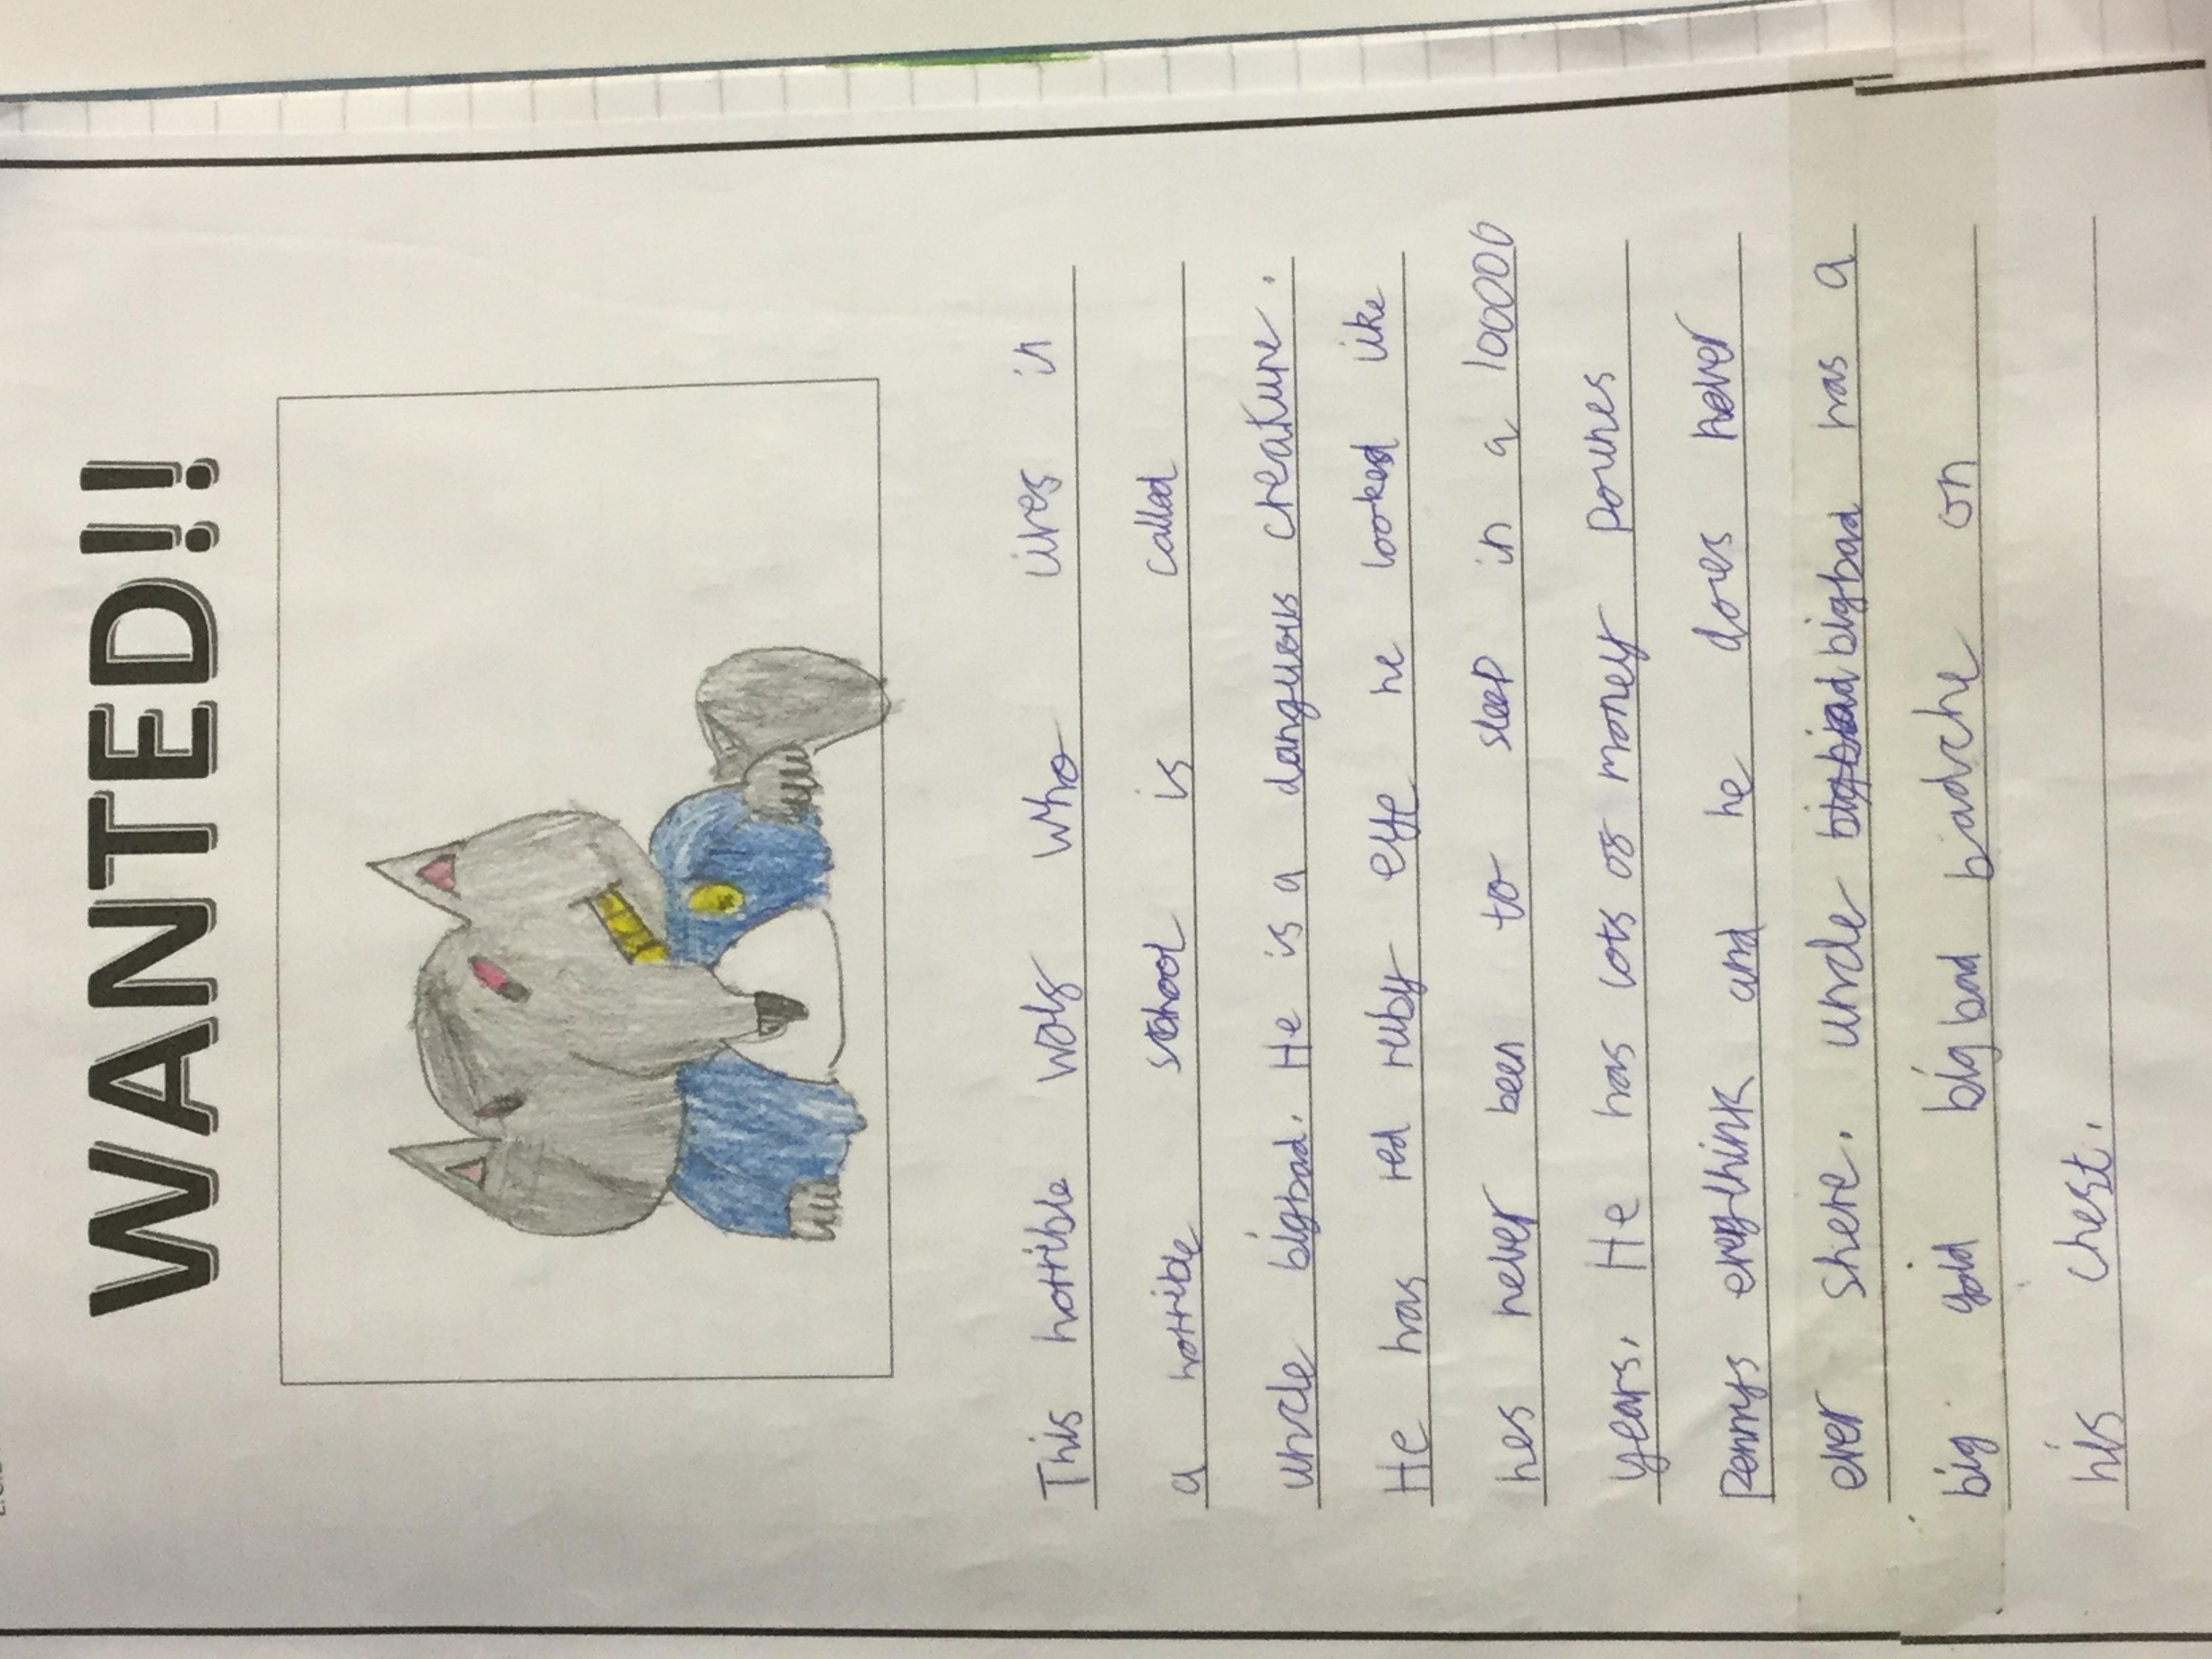 WANTED!!
This horrible wolf who lives in
a horrible school is called
uncle bigbad. He is a danguous creakure.
He has red ruby eye he looked like
hes never been to sleep in a 10000
years. He has lots of money pounes
Pennys erything and he does never
ever shere. uncle bigbad has a
big gold bigbad badche on
his chest.